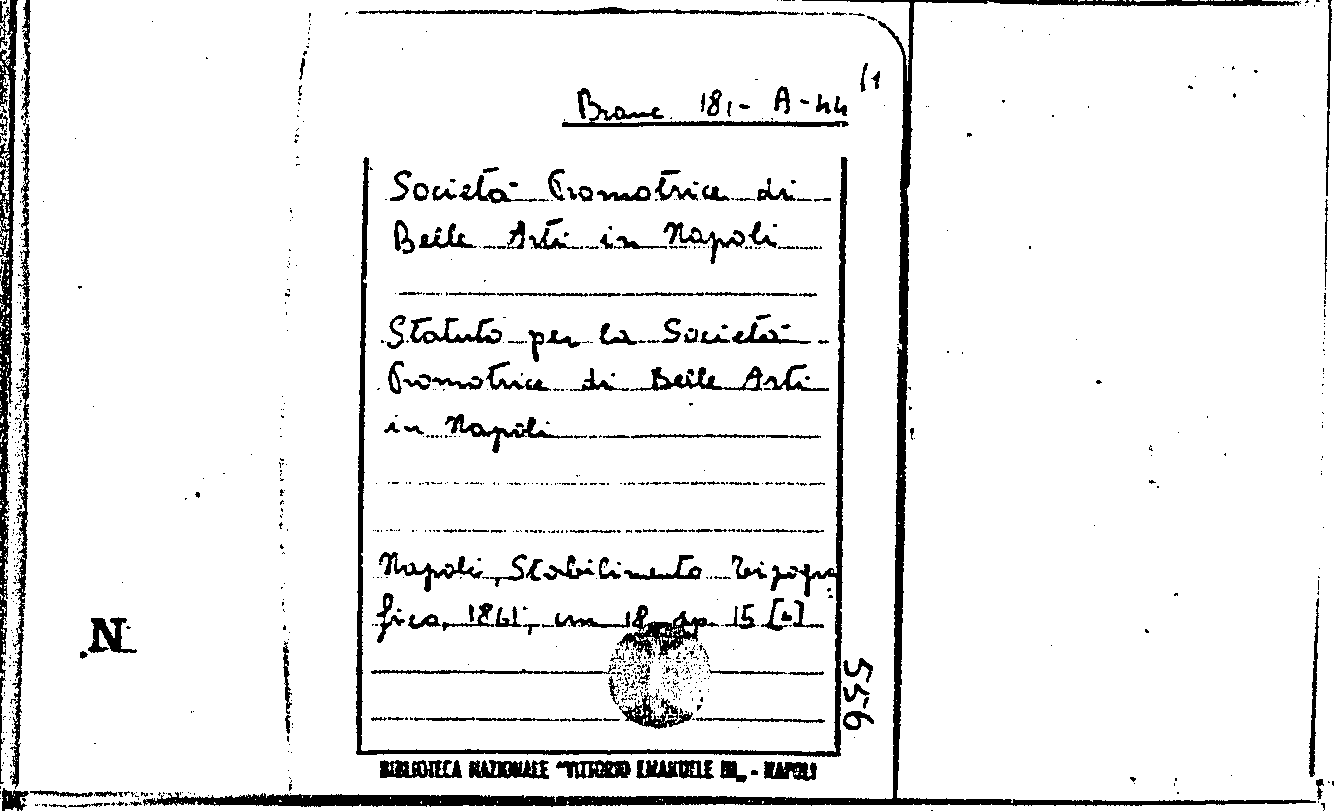 Branc 181- A-44
(1
Società Promotrice di
Belle Arti in Napoli
Statuto per la Società
Promotrice di Belle Arti
in Napoli
Napoli, Stabilimento Tipogra
fico, 1861, cm 18, pp. 15
N
556
BIBLIOTECA NAZIONALE "VITTORIO EMANUELE III" - NAPOLI